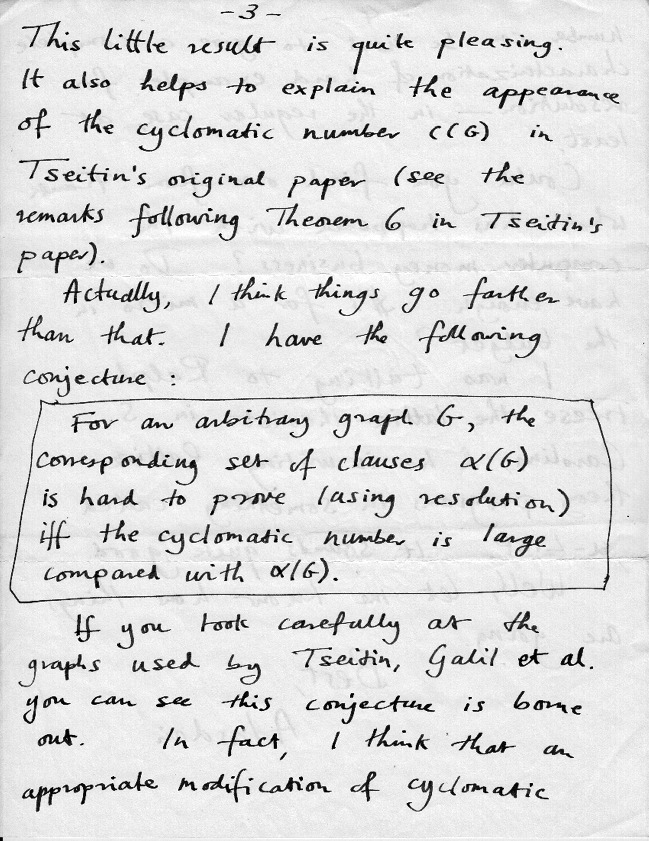 -3-
This little result is quite pleasing.
It also helps to explain the appearance
of the cyclomatic number C(G) in
Tseitin's original paper (see the
remarks following Theorem 6 in Tseitin's
paper).
Actually, I think things go farther
than that. I have the following
conjecture :
For an arbitrary graph G, the
corresponding set of clauses α(G)
is hard to prove (using resolution)
iff the cyclomatic number is large
compared with α(G).
If you look carefully at the
graphs used by Tseitin, Galil et al.
you can see this conjecture is borne
out. In fact, I think that an
appropriate modification of cyclomatic